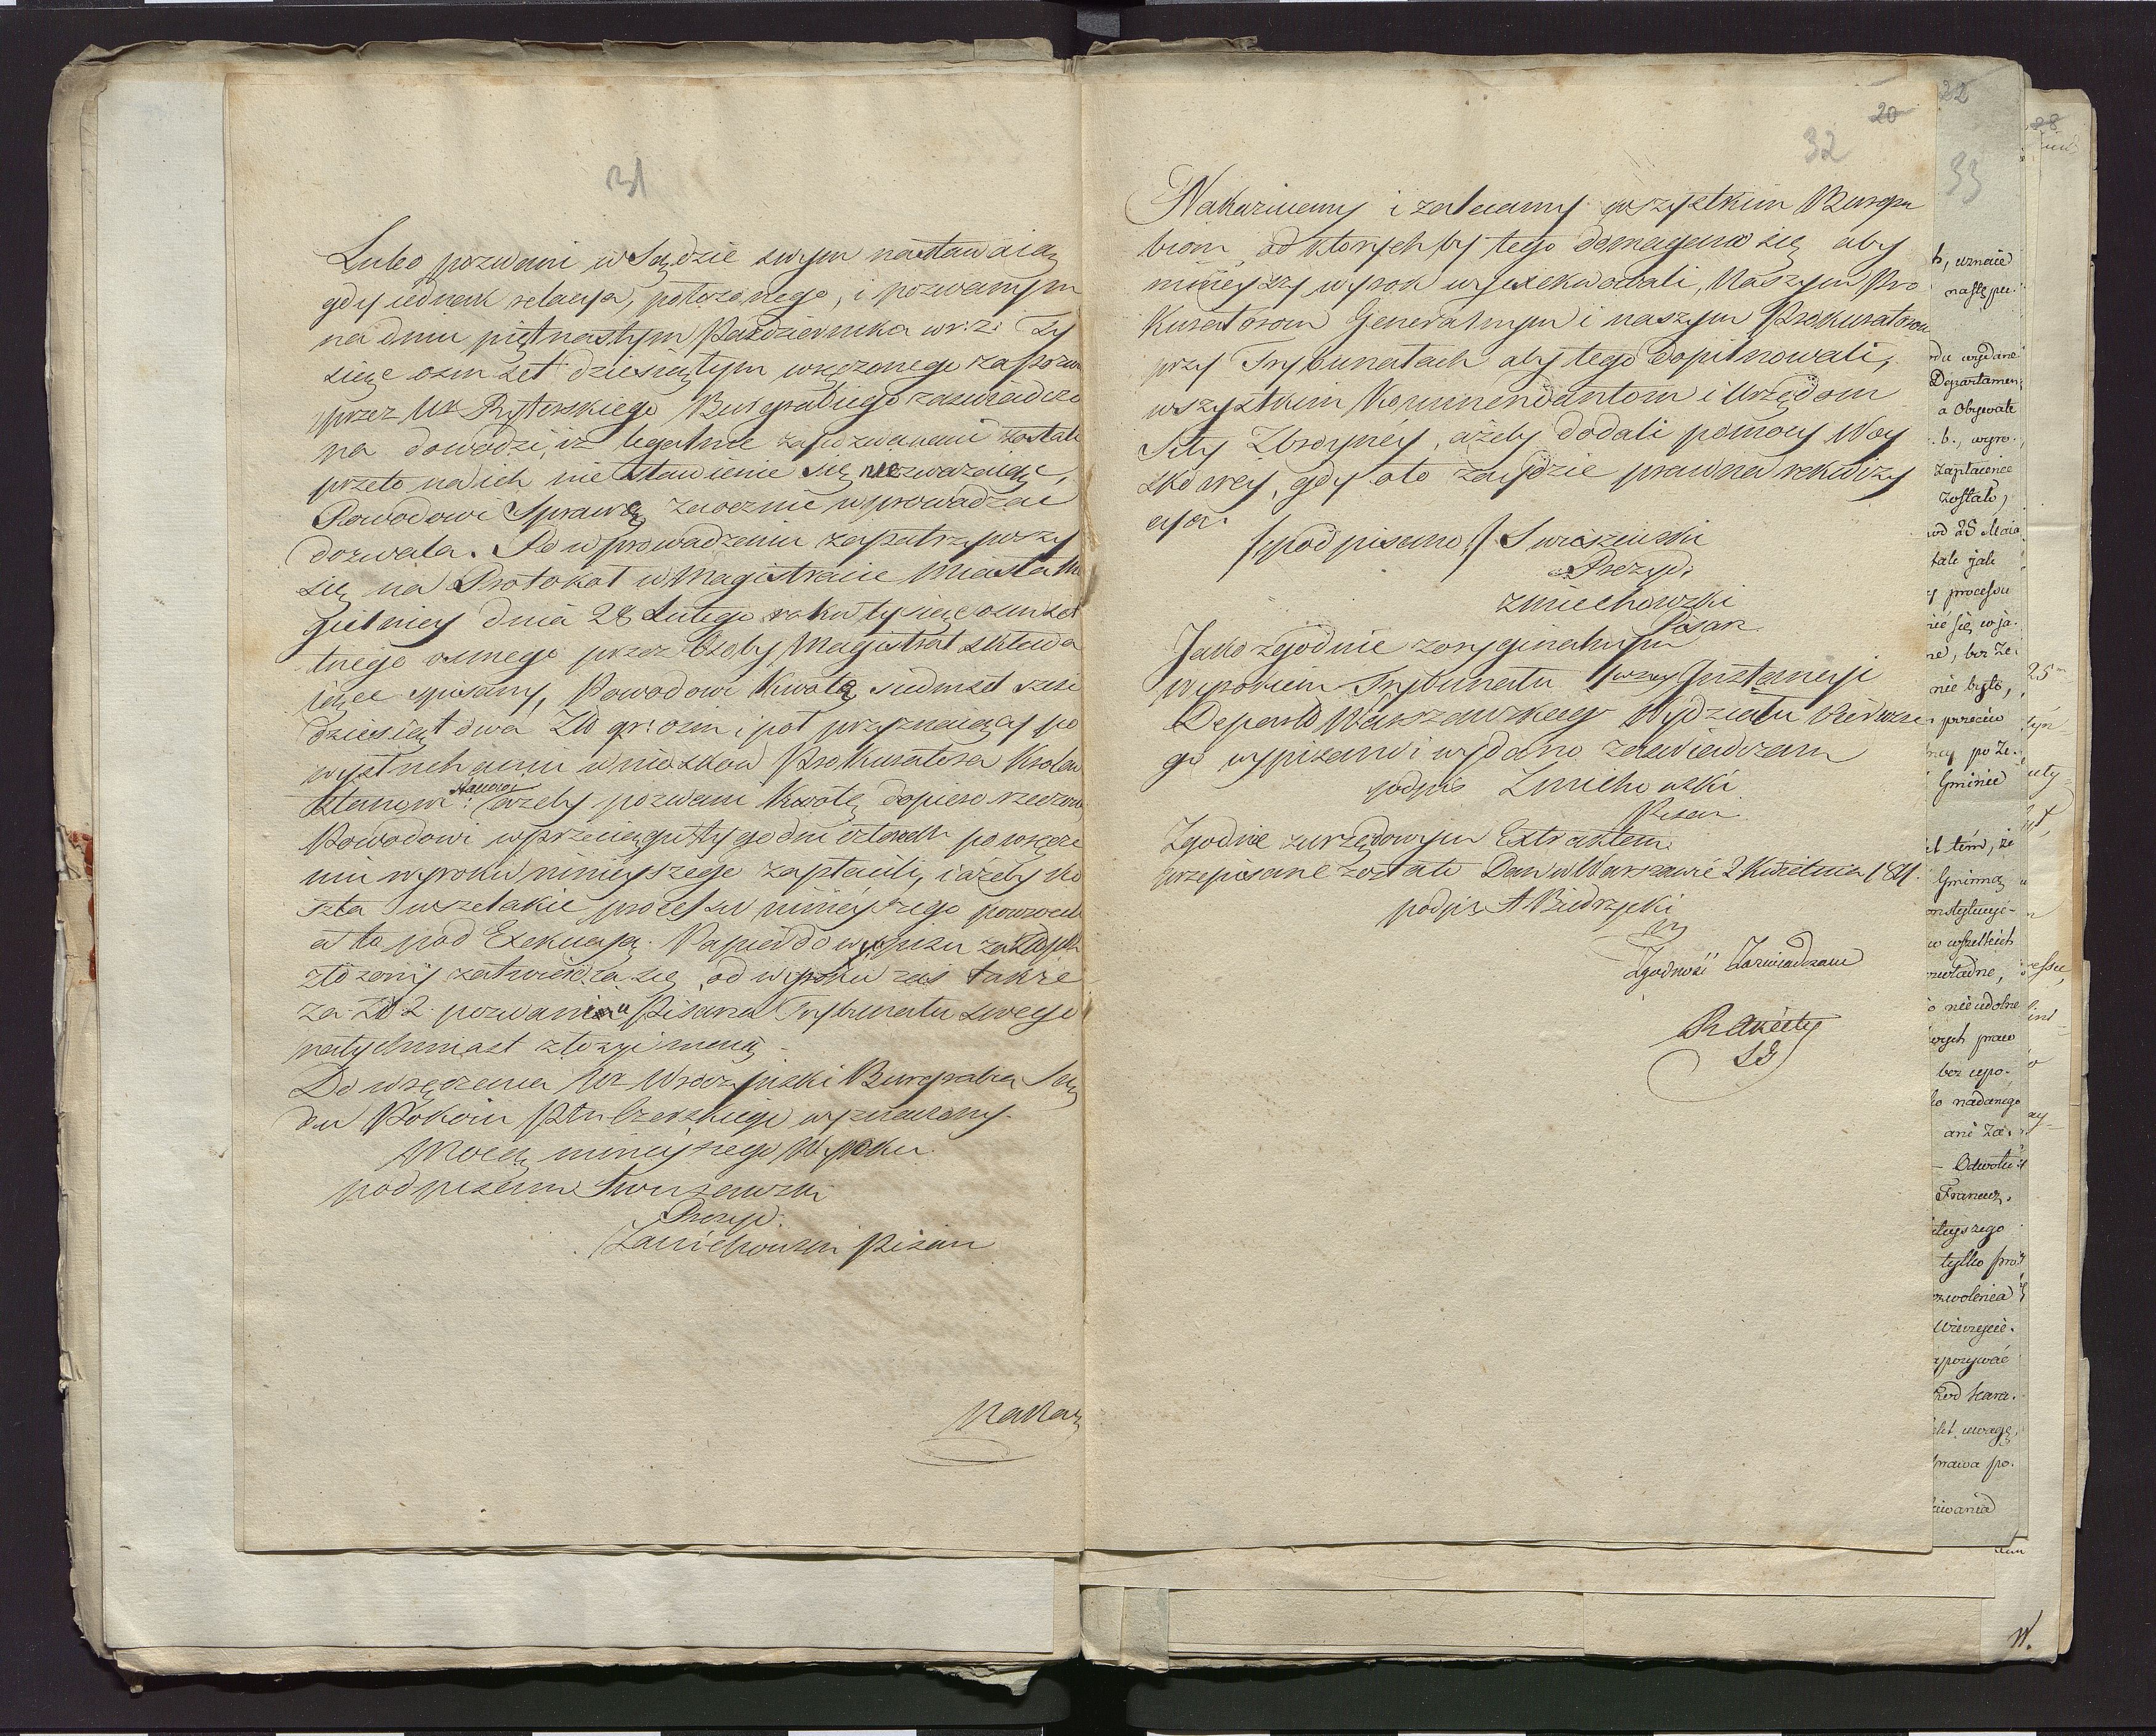 31
Lubo pozwani w Sądzie swym nastawaią
gdy iednak relacya, położonego, i pozwanym
na dniu piętnastym Października wr: z: Ty
siąc osm set dziesiątym wręczonego zapozwu
przez Ur Ryterskiego Burgrabiego zaświadczo
na dowodzi, iż legalnie zapozwanemi zostali
przeto na ich nie stawienie się niezważaiąc,
Powodowi Sprawę zaocznie wprowadzać
dozwala. Po wprowadzeniu zapatrzywszy
się na Protokół w Magistracie Miasta Mo
gielnicy dnia 28 Lutego roku tysiąc osmset
tnego osmego przez Osoby Magistrat składa
iące spisany, Powodowi Kwotę siedmset sześć
dziesiąt dwa Złł gr: osm i pół przyznaiący po
wysłuchaniu wniosków Prokuratora Królew
Stanowi
ażeby pozwani Kwotę dopiero rzeczoną
Powodowi w przeciągu tygodni czterech po wręcze
niu wyroku ninieyszego zapłacili, i ażeby ko
szta wszelakie processu ninieyszego powrócili
a to pod Exekucyą. Papier do wypisu za
złożony zatwierdza się, od wyroku zaś także
za Zł 2 pozwani Pisarza Trybunału swego
natychmiast złożyć maią.
Do wręczenia Ur Wroczyński Burgrabia Są
du Pokoiu Ptu Czerskiego wyznaczony.
Mocą ninieyszego Wyroku
podpisano Swiszewski
Prezyd.
Zmiechowski Pisarz
Nakaz
20
32
Nakazuiemy i zalecamy wszystkim Burgra
biom, od których by tego domagano się aby
ninieyszy wyrok wyexekwowali, Naszym Pro
kuratorom Generalnym i naszym Prokuratorom
przy Trybunałach aby tego dopilnowali,
wszystkim Kommendantom i Urzędom
Siły Zbroyney, ażeby dodali pomocy Woy
skowey, gdy oto zaydzie prawna rekwizy
cya.
/:podpisano:/ Swiszewski
Prezyd:
Zmiechowski
Pisarz
Jako zgodnie z oryginalnym
wyrokiem Trybunału Instancyi
Depart Warszawskiego Wydziału Pierwsze
go wypisano i wydano zaświadczam
podpis Zmiechowski
Pisarz
Zgodnie z urzędowym Extraktem
przepisane zostało Dan w Warszawie 2 Kwietnia 1811.
podpis A Biedrzycki
Zgodność Zaświadczam
22
33
b, uznaie
nastę pu:
wydane
Departamen;
a Obywate
. b., wyro.
zapłacenie
zostało,
od 25 Maia
tak jak
processu
nie było,
przeciw
Gminie
tém, że
Gminną
wszelkich
nieudolne
praw
bez upo:
nadanego
ani za
Odwołu
Francuz.
tylko
zwolenia
uwagę,
prawa po.
28
25
N.